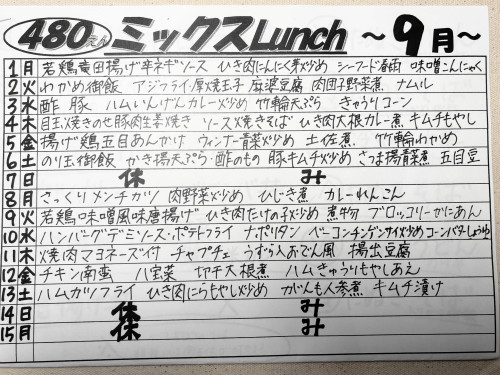 480えん ミックスLunch ~9月~
1 月 若鶏竜田揚げ辛ネギソース ひき肉にんにく芽炒め シーフード春雨 味噌こんにゃく
2 火 わかめ御飯 アジフライ・厚焼玉子 麻婆豆腐 肉団子野菜煮 ナムル
3 水 酢豚 ハムいんげんカレー炒め 竹輪天ぷら きゅうりコーン
4 木 目玉焼きのせ豚肉生姜焼き ソース焼きそば ひき肉大根カレー煮 キムチもやし
5 金 揚げ鶏五目あんかけ ウィンナー青菜炒め 土佐煮 竹輪わかめ
6 土 のり玉御飯 かき揚天ぷら・酢のもの 豚キムチ炒め さつま揚青菜煮 五目豆
7 日 休み
8 月 さっくりメンチカツ 肉野菜炒め ひじき煮 カレーれんこん
9 火 若鶏味噌風味唐揚げ ひき肉たけの子炒め 煮物 ブロッコリーゼにあん
10 水 ハンバーグデミソース・ポテトフライ ナポリタン ベーコンチンゲンサイ炒め コーンバターしょうゆ
11 木 焼肉マヨネーズ付 チャプチェ うずら入おでん風 揚出豆腐
12 金 チキン南蛮 八宝菜 切干大根煮 ハムきゅうりもやしあえ
13 土 ハムカツフライ ひき肉にらもやし炒め がんも人参煮 キムチ漬け
14 日 休み
15 月 休み